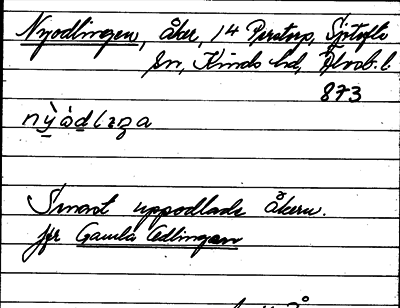 Nyodlingen, åker, 14 Perstorp, Sjötofta
sn, Kinds hd, Älvsb. l.
873
nỳàdlıŋa
Senast uppodlade åkern.
jfr Gamla Odlingen